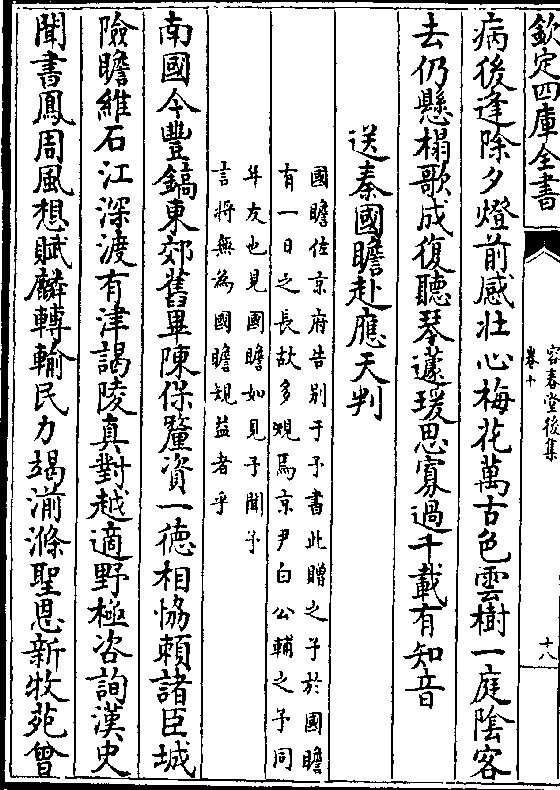 欽定四庫全書
容春堂後集
卷十
十八
病後逢除夕燈前感壯心梅花萬古色雲樹一庭陰客
去仍懸榻歌成復聽琴蘧瑗思寡過千載有知音
送秦國瞻赴應天判
國瞻佐京府告别于予書此贈之予於國瞻
有一日之長故多規焉京尹白公輔之予同
年友也見國瞻如見予聞予
言將無為國瞻規益者乎
南國今豐鎬東郊舊畢陳保釐資一徳相恊賴諸臣城
險瞻維石江深渡有津謁陵真對越適野極咨詢漢史
聞書鳳周風想賦麟轉輸民力竭湔滌聖恩新牧苑曾